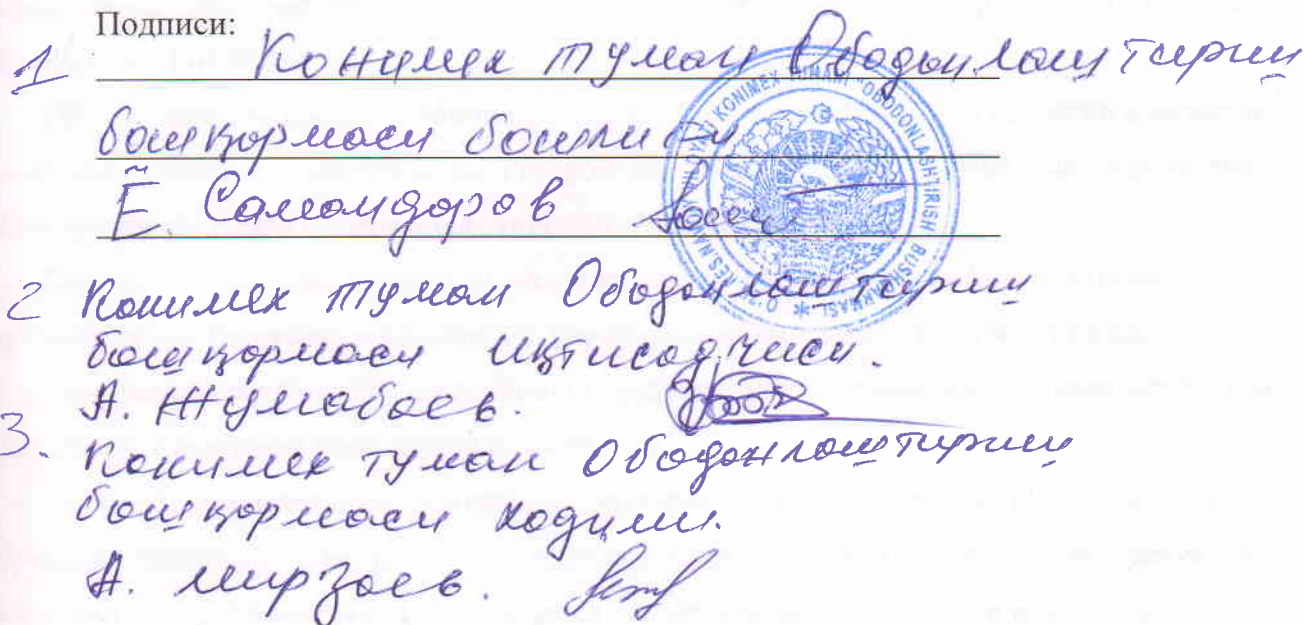 Подписи:
1 Конимех туман Ободонлаштириш
бошқормаси бошлиғи
Ё. Самандаров
2 Конимех туман Ободонлаштириш
бошқормаси иқтисодчиси.
А. Жумабаев.
3. Конимех туман Ободонлаштириш
бошқормаси ходими.
А. Мирзаев.
KONIMEX TUMANI "OBODONLASHTIRISH